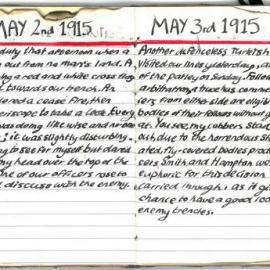 MAY 2nd 1915
duty that afternoon when a
out from no man's land. A
a red and white cross they
towards our trench. An
ordered a cease fire, then
periscope to take a look. Every
was doing likewise and no one
it was slightly disturbing.
to see for myself but dared
my head over the top of the
One of our officers rose to
discuss with the enemy.
MAY 3rd 1915
Another defenceless Turkish
visited our lines yesterday, a
of the parley on Sunday. Follow
arbitration, a truce has comme
iers from either side are eligible
bodies of their fellows without
You see, my cobbers stan
out due to the horrendous st
ated, fly-covered bodies prod
cers Smith and Hampton we
euphoric for this decision
carried through, as it g
chance to have a good loo
enemy trenches.